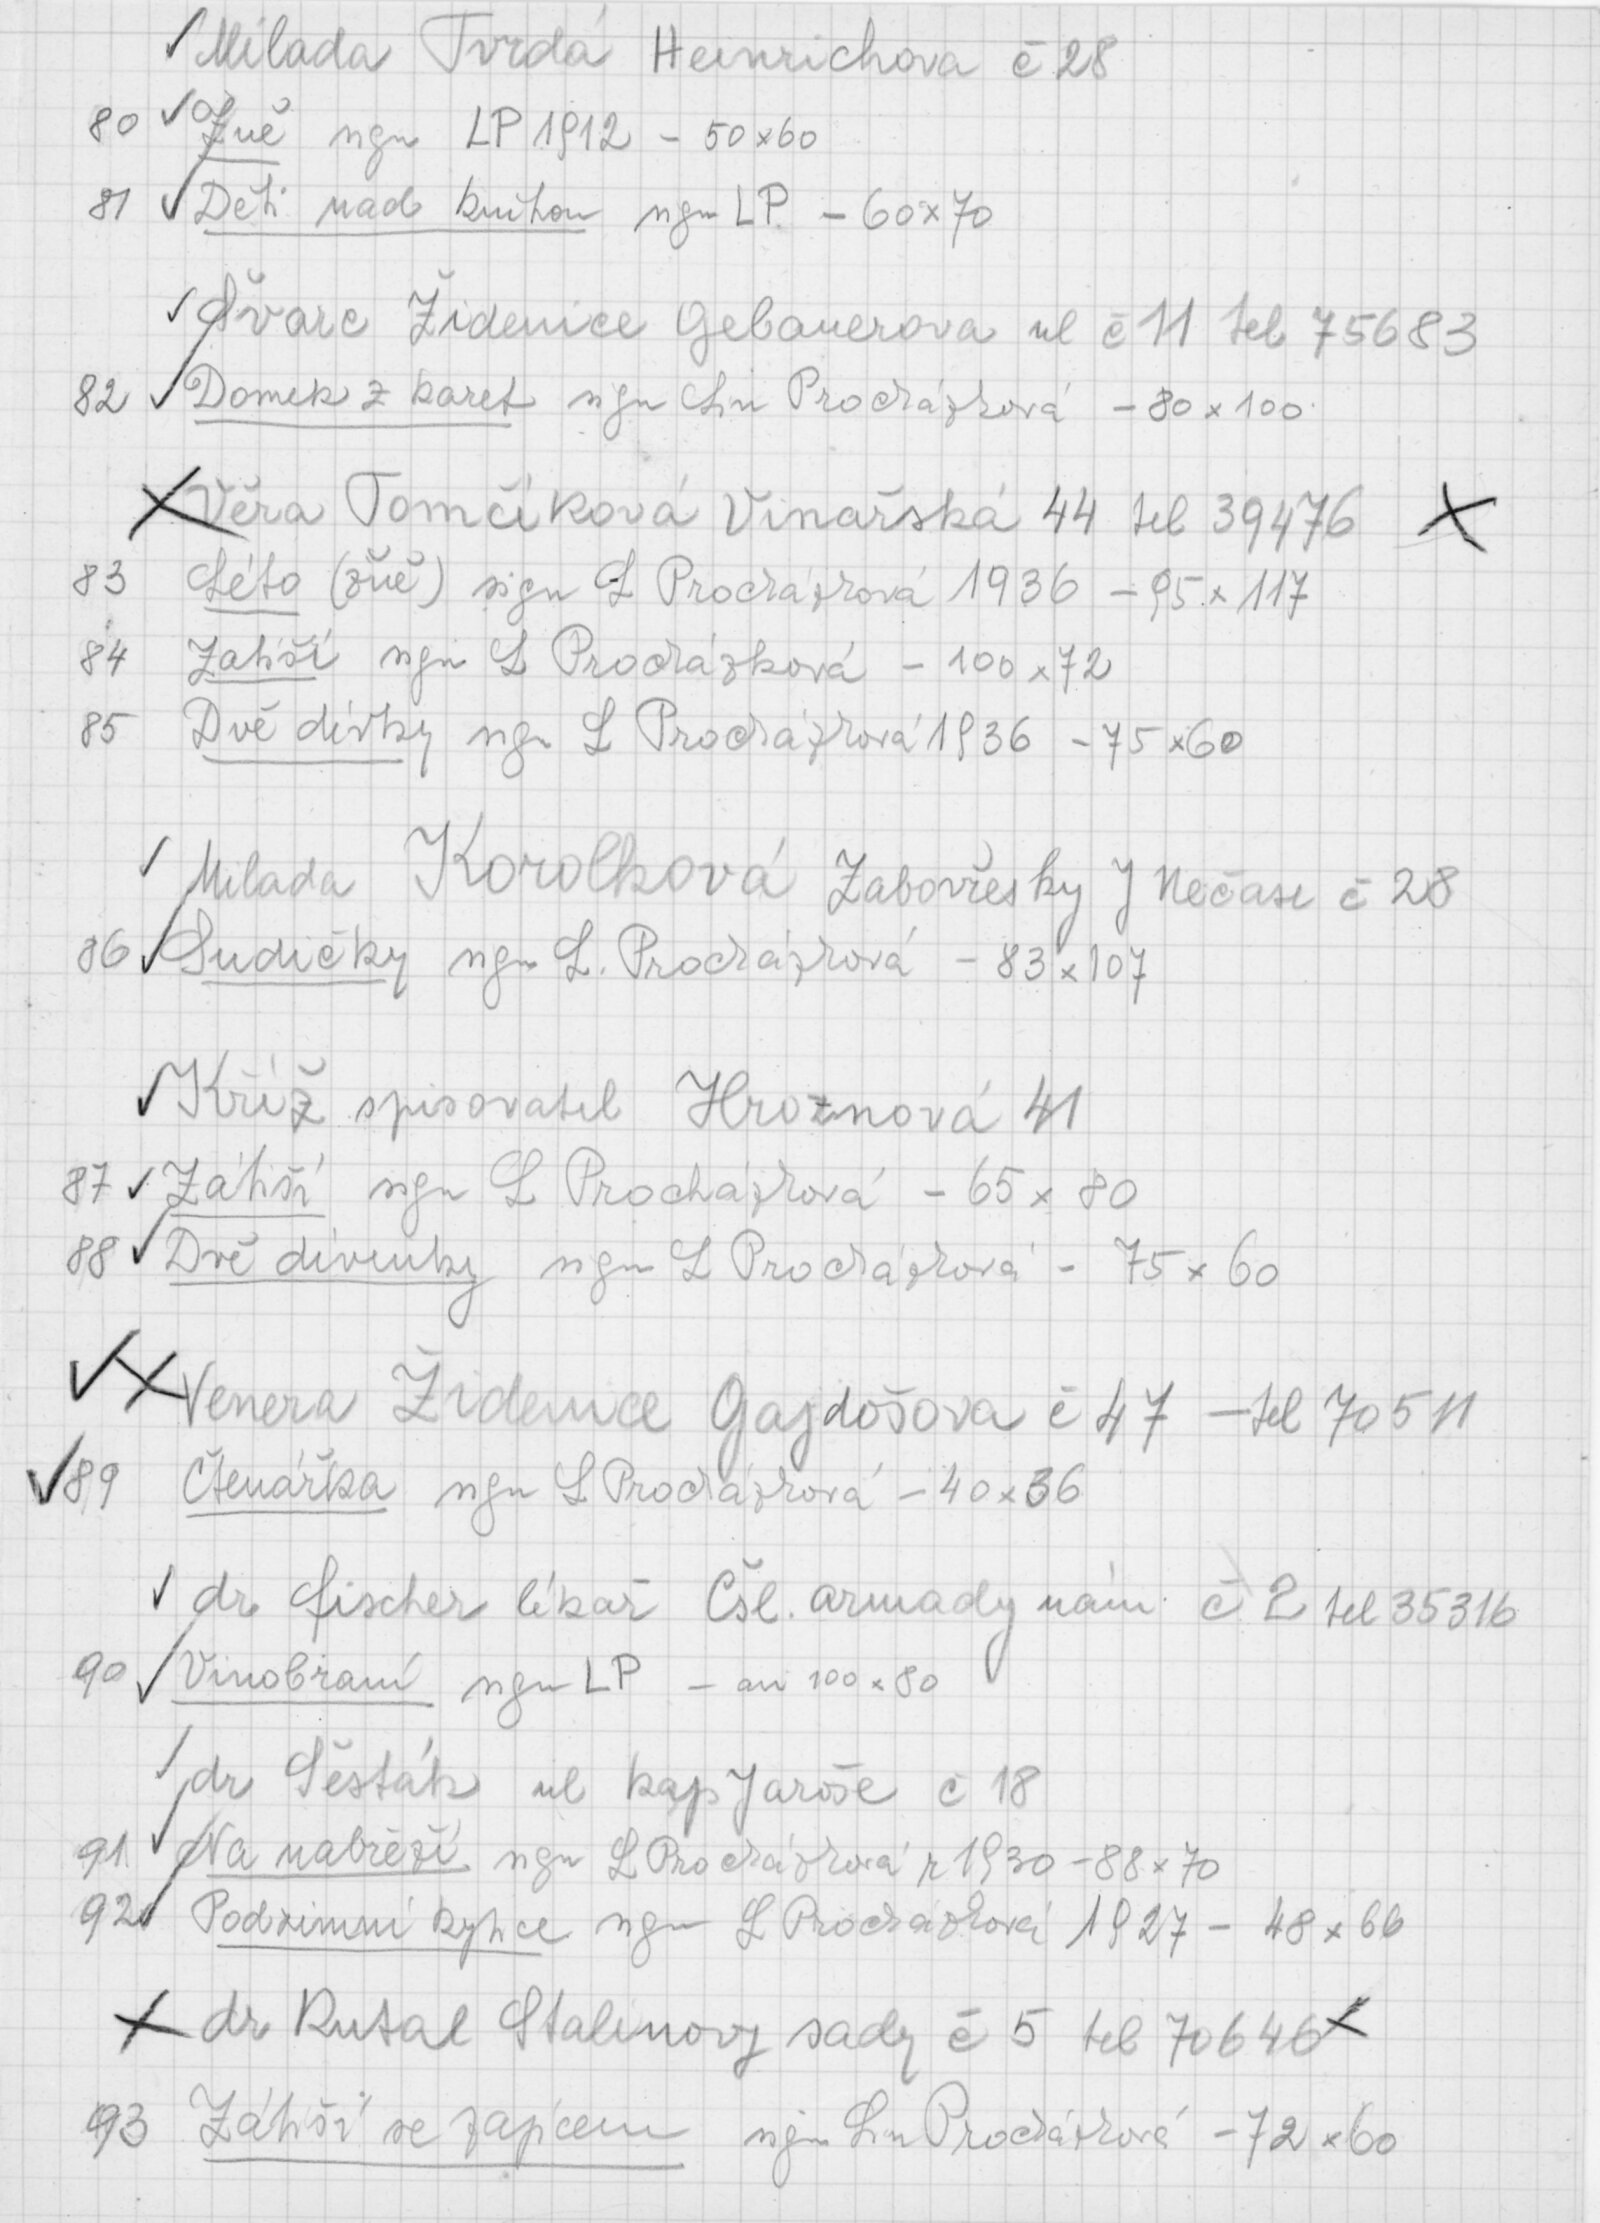 Milada Tvrdá Heinrichova č 28
80 Žně sign LP 1912 - 50x60
81 Děti nad knihou sign LP - 60x70
Švarc Židenice Gebauerova ul č 11 tel 75683
82 Domek z karet sign Lin Procházková - 80x100
Věra Tomčíková Vinařská 44 tel 39476
83 Léto (žně) sign L Procházková 1936 - 95x117
84 Zátiší sign L Procházková - 100x72
85 Dvě dívky sign L Procházková 1936 - 75x60
Milada Korolková Žabovřesky J Nečase č 28
86 Sudičky sign L. Procházková - 83x107
Kříž spisovatel Hroznová 41
87 Zátiší sign L Procházková - 65x80
88 Dvě divenky sign L Procházková - 75x60
Venera Židenice Gajdošova č 47 - tel 70511
89 Čtenářka sign L Procházková - 40x36
dr Fischer lékař Čsl. armady nám č 2 tel 35316
90 Vinobraní sign LP - asi 100x80
dr Šesták ul kap Jaroše č 18
91 Na nábřeží sign L Procházková r 1930 - 88x70
92 Podzimní kytice sign L Procházková 1927 - 48x66
dr Kutal Stalinovy sady č 5 tel 70646
93 Zátiší se zajícem sign Lin Procházková - 72x60